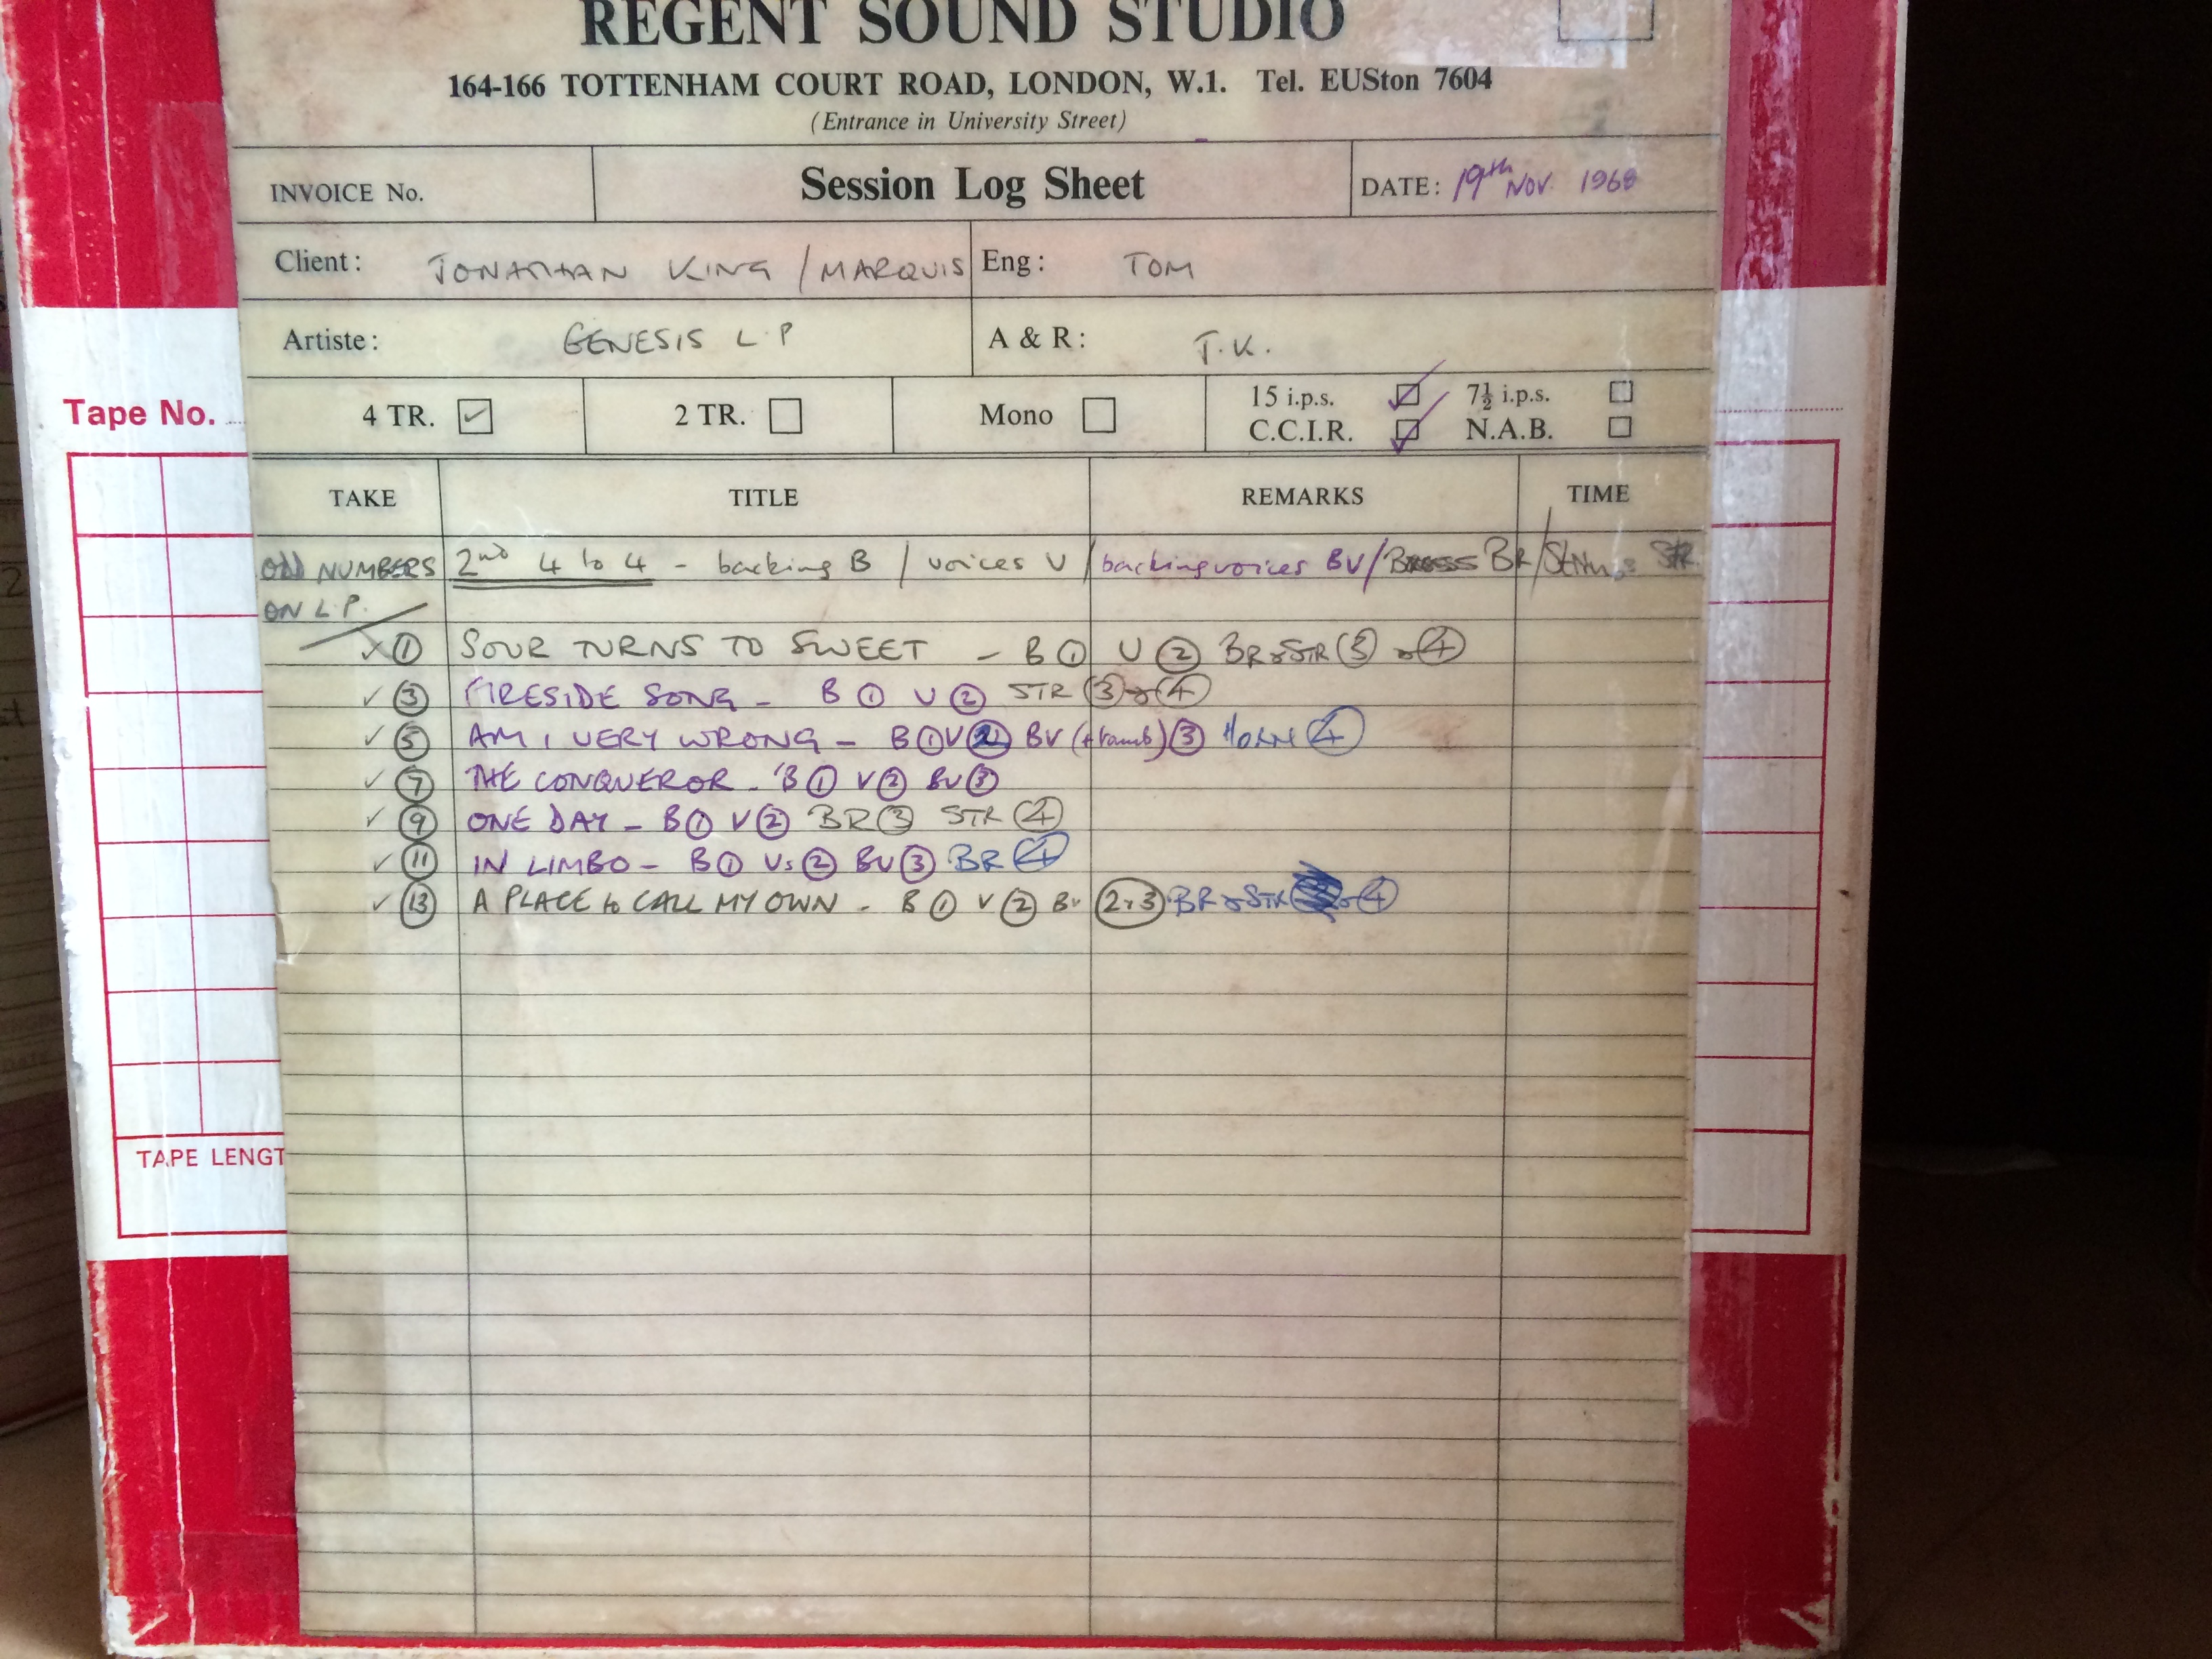 REGENT SOUND STUDIO
164-166 TOTTENHAM COURT ROAD, LONDON, W.1. Tel. EUSton 7604
(Entrance in University Street)
INVOICE No. Session Log Sheet DATE: 19th NOV. 1968
Client: JONATHAN KING / MARQUIS Eng: TOM
Artiste: GENESIS L.P A & R: J.K.
Tape No.
4 TR. ✓ 2 TR. Mono 15 i.p.s. ✓ 7½ i.p.s.
C.C.I.R. ✓ N.A.B.
TAKE TITLE REMARKS TIME
ODD NUMBERS 2nd 4 to 4 - backing B / voices V / backing voices BV / Brass BR / Strings STR
ON L.P.
✓ ① SOUR TURNS TO SWEET - B ① V ② BR & STR ③ & ④
✓ ③ FIRESIDE SONG - B ① V ② STR ③ & ④
✓ ⑤ AM I VERY WRONG - B ① V ② BV (+ tamb) ③ HORN ④
✓ ⑦ THE CONQUEROR - B ① V ② BV ③
✓ ⑨ ONE DAY - B ① V ② BR ③ STR ④
✓ ⑪ IN LIMBO - B ① Vs ② BV ③ BR ④
✓ ⑬ A PLACE to CALL MY OWN - B ① V ② BV (2+3) BR & STR & ④
TAPE LENGT